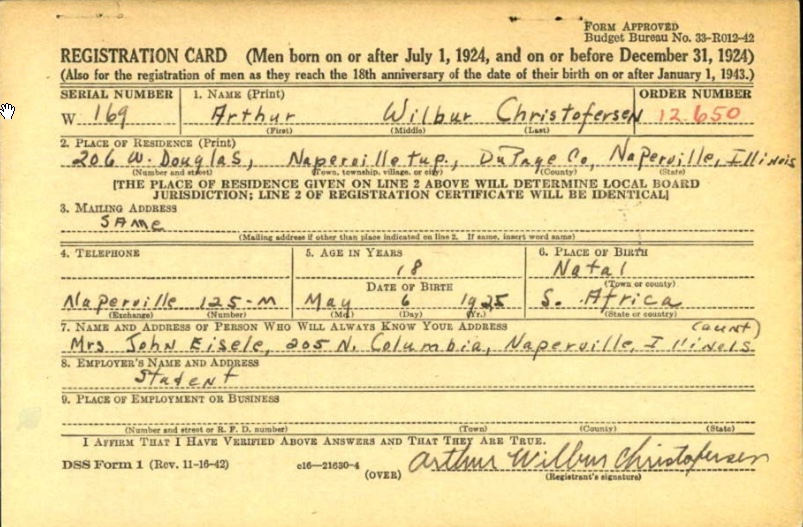 FORM APPROVED
Budget Bureau No. 33-R012-42
REGISTRATION CARD (Men born on or after July 1, 1924, and on or before December 31, 1924)
(Also for the registration of men as they reach the 18th anniversary of the date of their birth on or after January 1, 1943.)
SERIAL NUMBER 1. NAME (Print) ORDER NUMBER
W 169 Arthur Wilbur Christofersen 12650
(First) (Middle) (Last)
2. PLACE OF RESIDENCE (Print)
206 W. Douglas, Naperville twp., DuPage Co, Naperville, Illinois
(Number and street) (Town, township, village, or city) (County) (State)
[THE PLACE OF RESIDENCE GIVEN ON LINE 2 ABOVE WILL DETERMINE LOCAL BOARD
JURISDICTION; LINE 2 OF REGISTRATION CERTIFICATE WILL BE IDENTICAL]
3. MAILING ADDRESS
SAME
(Mailing address if other than place indicated on line 2. If same, insert word same)
4. TELEPHONE 5. AGE IN YEARS 6. PLACE OF BIRTH
18 Natal
DATE OF BIRTH (Town or county)
Naperville 125-M May 6 1925 S. Africa
(Exchange) (Number) (Mo.) (Day) (Yr.) (State or country)
7. NAME AND ADDRESS OF PERSON WHO WILL ALWAYS KNOW YOUR ADDRESS (aunt)
Mrs John Eisele, 205 N. Columbia, Naperville, Illinois
8. EMPLOYER'S NAME AND ADDRESS
Student
9. PLACE OF EMPLOYMENT OR BUSINESS
(Number and street or R. F. D. number) (Town) (County) (State)
I AFFIRM THAT I HAVE VERIFIED ABOVE ANSWERS AND THAT THEY ARE TRUE.
DSS Form 1 (Rev. 11-16-42) c16—21630-4 Arthur Wilbur Christofersen
(OVER) (Registrant's signature)